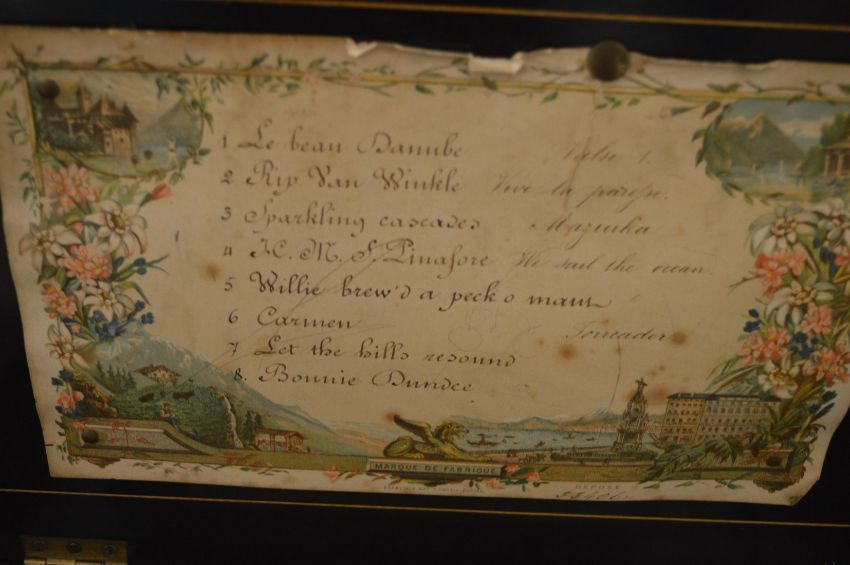 1 Le beau Danube Valse 1.
2 Rip Van Winkle Vive la
3 Sparkling cascades Mazurka
4 H. M. S. Pinafore We sail the ocean
5 Willie brew'd a peck o maut
6 Carmen Toreador
7 Let the hills resound
8. Bonnie Dundee
MARQUE DE FABRIQUE
DÉPOSÉ